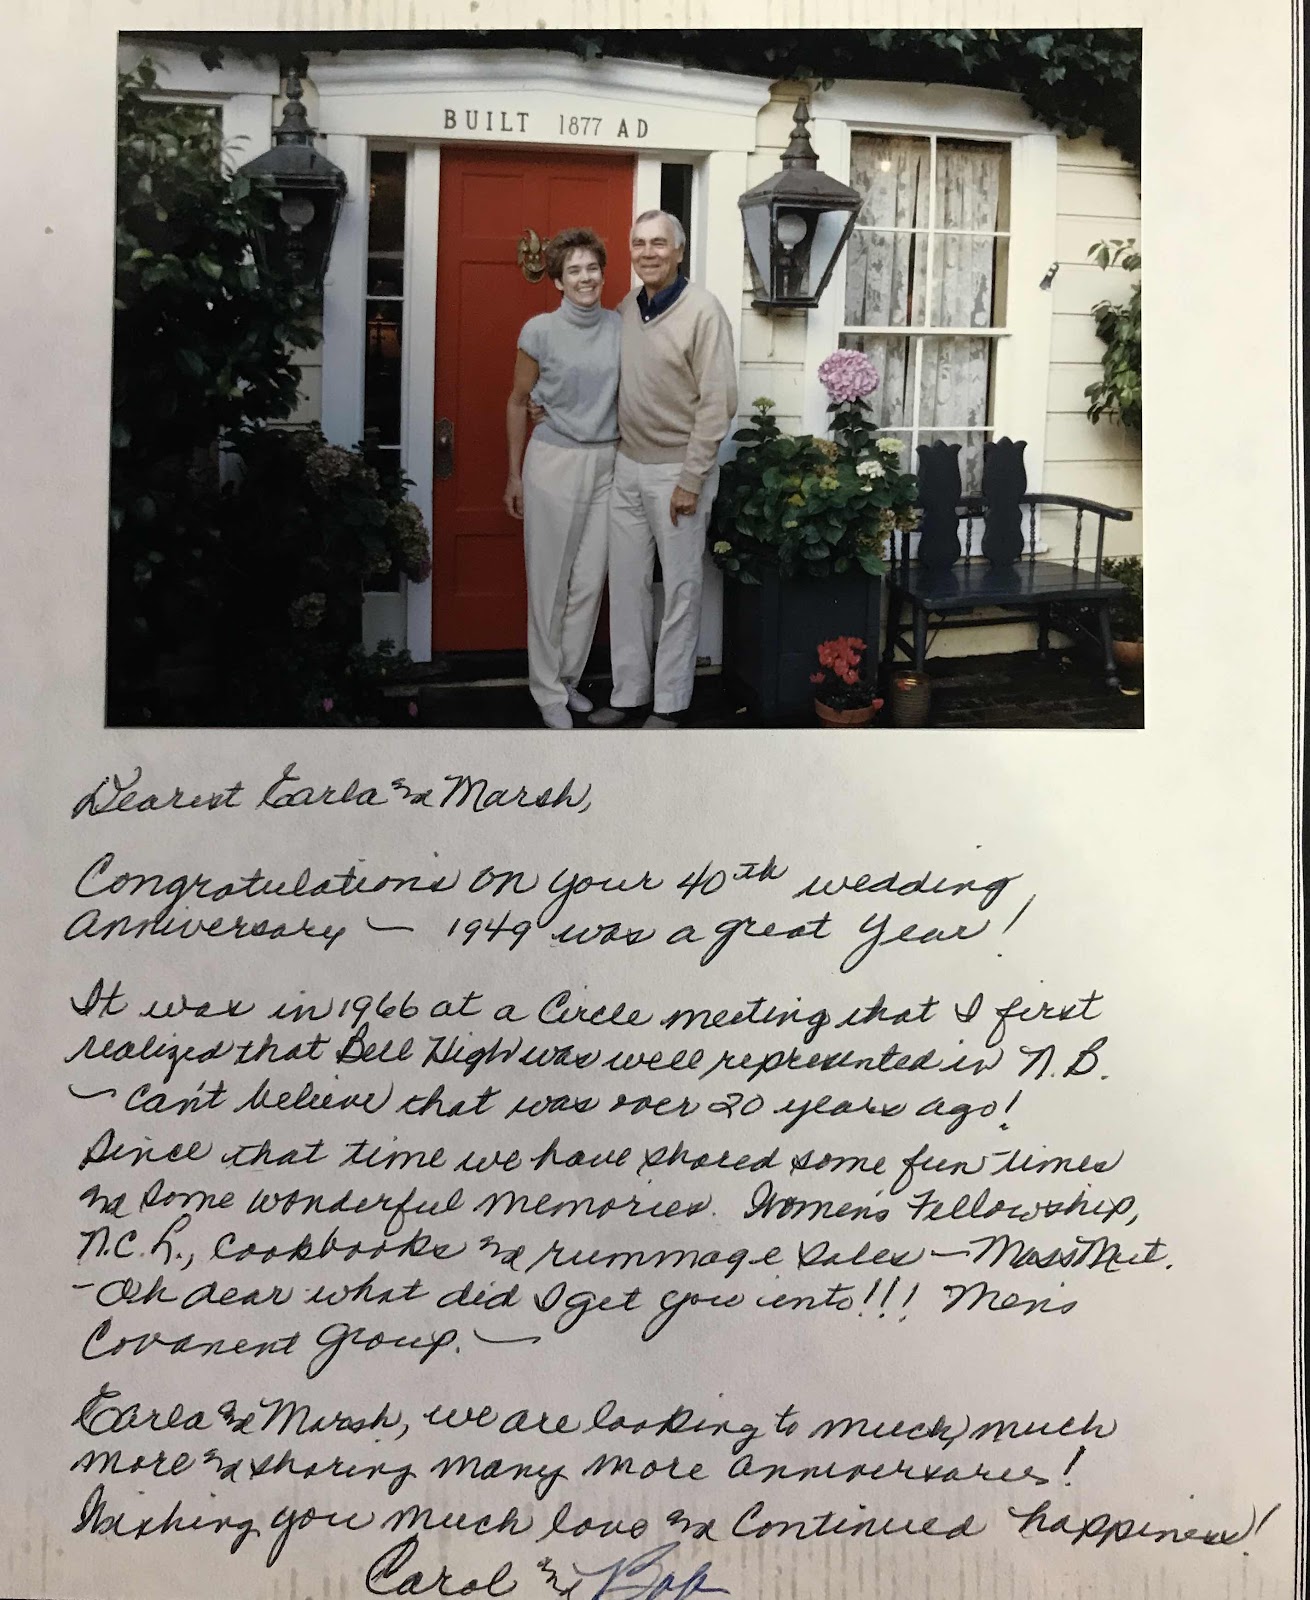 BUILT 1877 AD
Dearest Earla and Marsh,
Congratulations on your 40th wedding
anniversary — 1949 was a great year!
It was in 1966 at a Circle meeting that I first
realized that Bell High was well represented in N.B.
— can't believe that was over 20 years ago!
Since that time we have shared some fun times
and some wonderful memories. Women's Fellowship,
N.C.L., cookbooks and rummage sales — Mass Mut.
— Oh dear what did I get you into!!! Men's
Covanent Group. —
Earla and Marsh, we are looking to much, much
more and sharing many more anniversaries!
Wishing you much love and continued happiness!
Carol and Bob